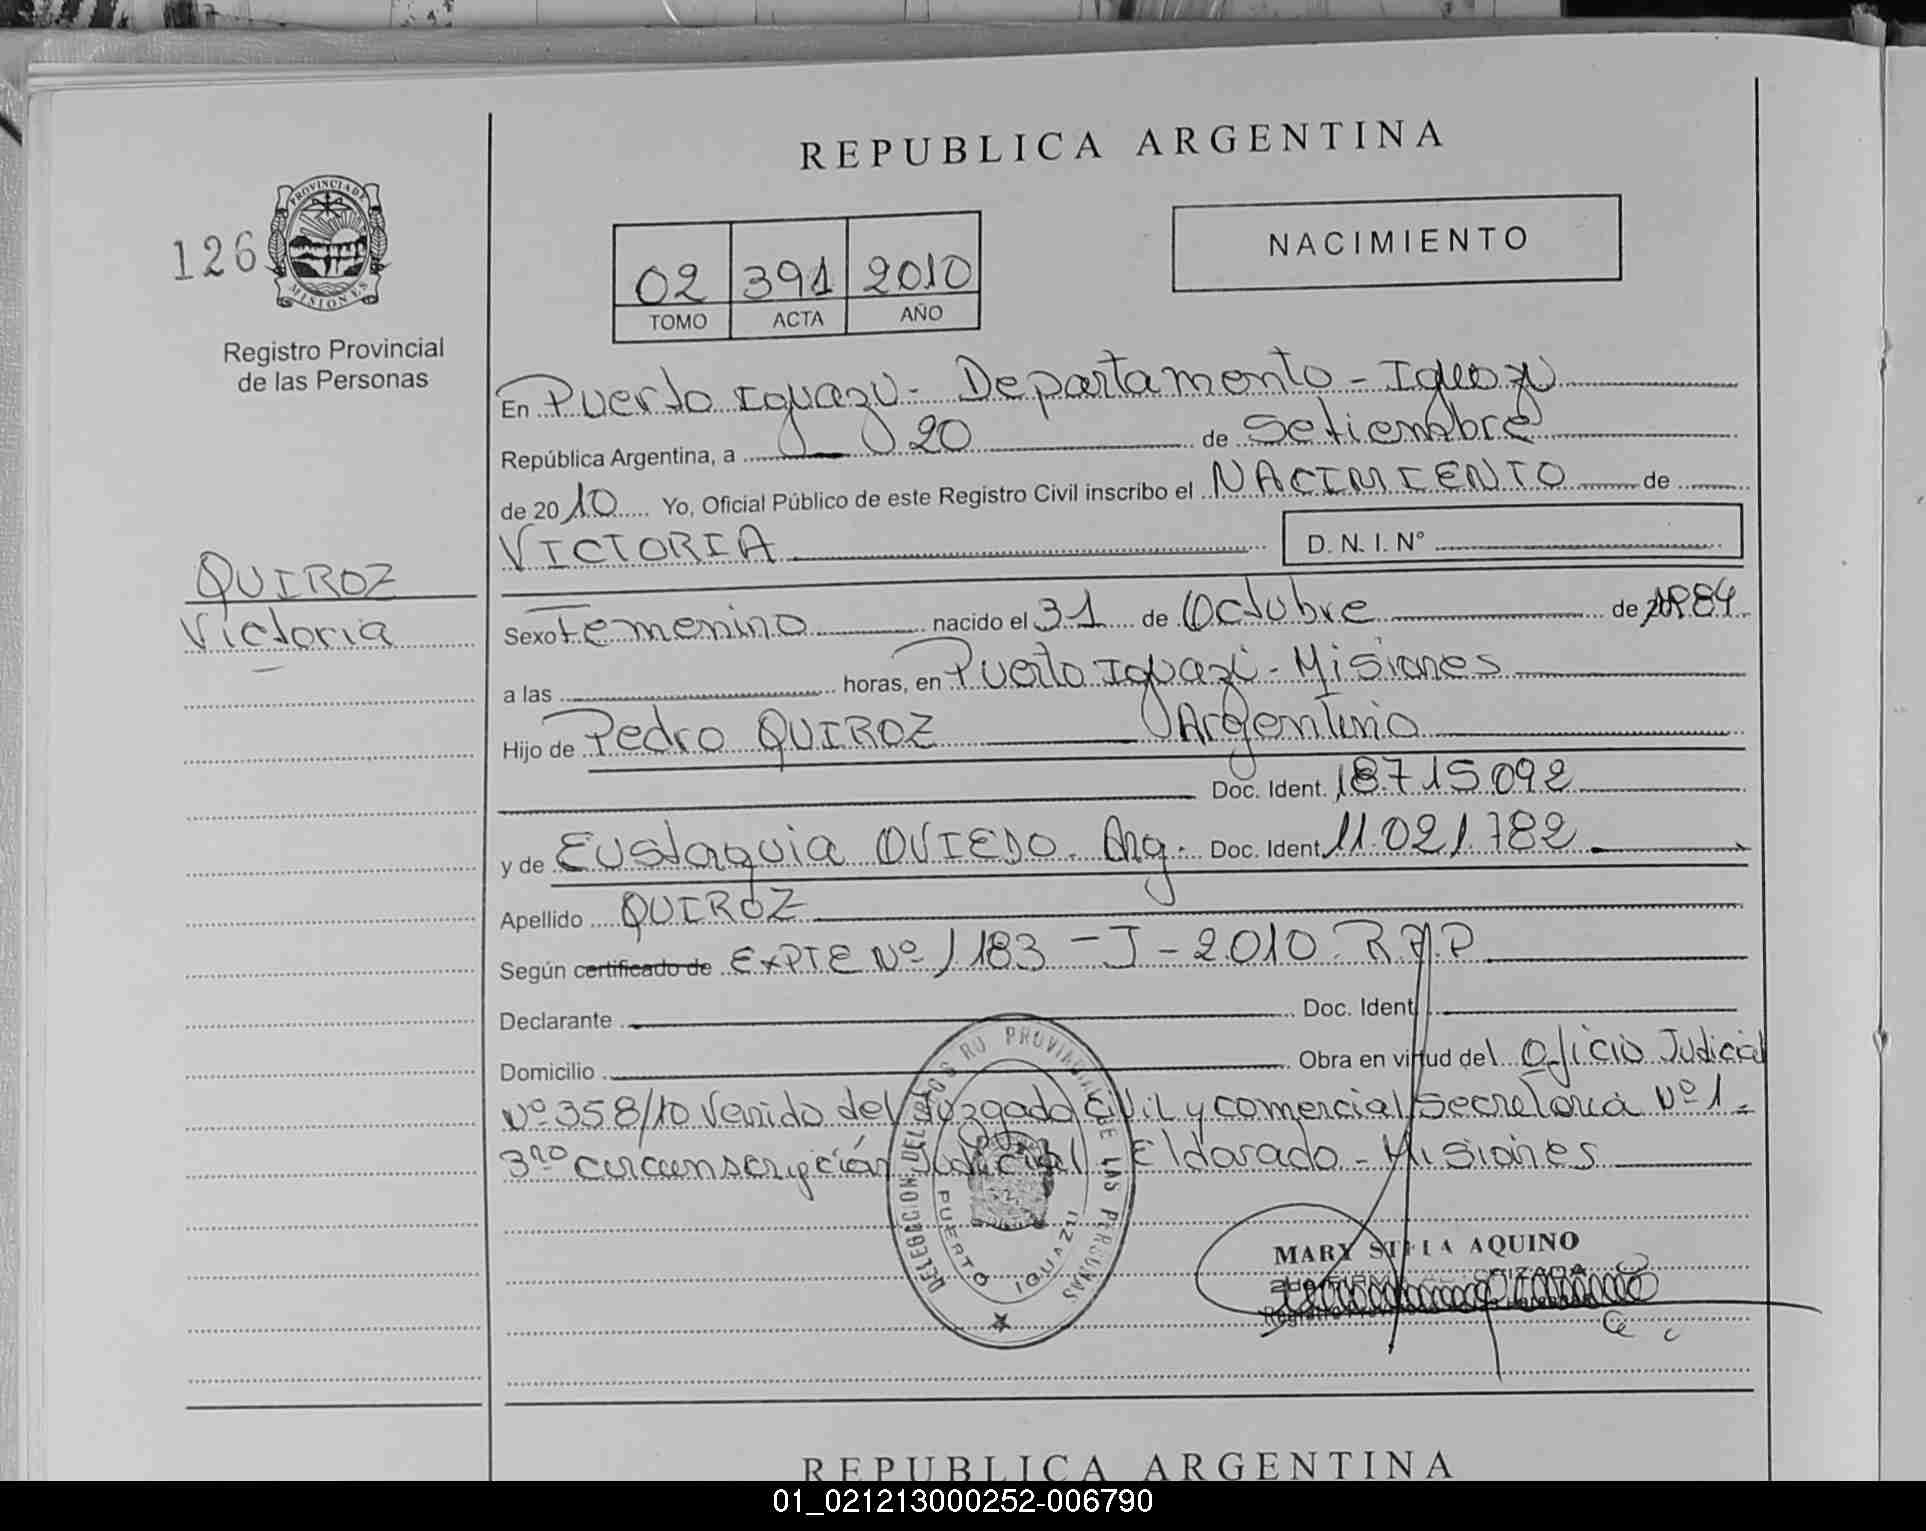 REPUBLICA ARGENTINA
126
PROVINCIA DE
MISIONES
Registro Provincial
de las Personas
02 391 2010
TOMO ACTA AÑO
NACIMIENTO
En Puerto Iguazú - Departamento - Iguazú
República Argentina, a 20 de Setiembre
de 2010 Yo, Oficial Público de este Registro Civil inscribo el NACIMIENTO de
VICTORIA D. N. I. Nº
QUIROZ
Victoria
Sexo Femenino nacido el 31 de Octubre de 1984
a las horas, en Puerto Iguazú - Misiones
Hijo de Pedro QUIROZ Argentino
Doc. Ident. 18715092
y de Eustaquia OVIEDO. Arg. Doc. Ident. 11.021.782
Apellido QUIROZ
Según certificado de EXPTE Nº 1183 - J - 2010. R.P.P
Declarante Doc. Ident.
Domicilio Obra en virtud del Oficio Judicial
Nº 358/10 Venido del Juzgado Civil y comercial Secretaria Nº 1.
3ra circunscripción Judicial Eldorado - Misiones
DELEGACION DEL PROVINCIAL DE LAS PERSONAS
PUERTO IGUAZU
MARY STELA AQUINO
REPUBLICA ARGENTINA
01_021213000252-006790